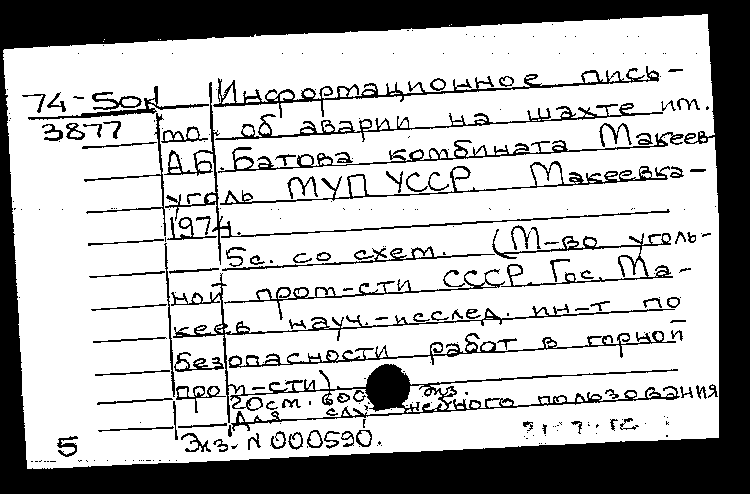 74-5ок Информационное пись-
3877 мо об аварии на шахте им.
А.Б. Батова комбината Макеев
уголь МУП УССР. Макеевка-
1974.
5с. со схем. (М-во уголь-
ной пром-сти СССР. Гос. Ма-
кеев. науч.-исслед. ин-т по
безопасности работ в горной
пром-сти).
20см. 600 экз.
Для служебного пользования
5 Экз. N 000590.